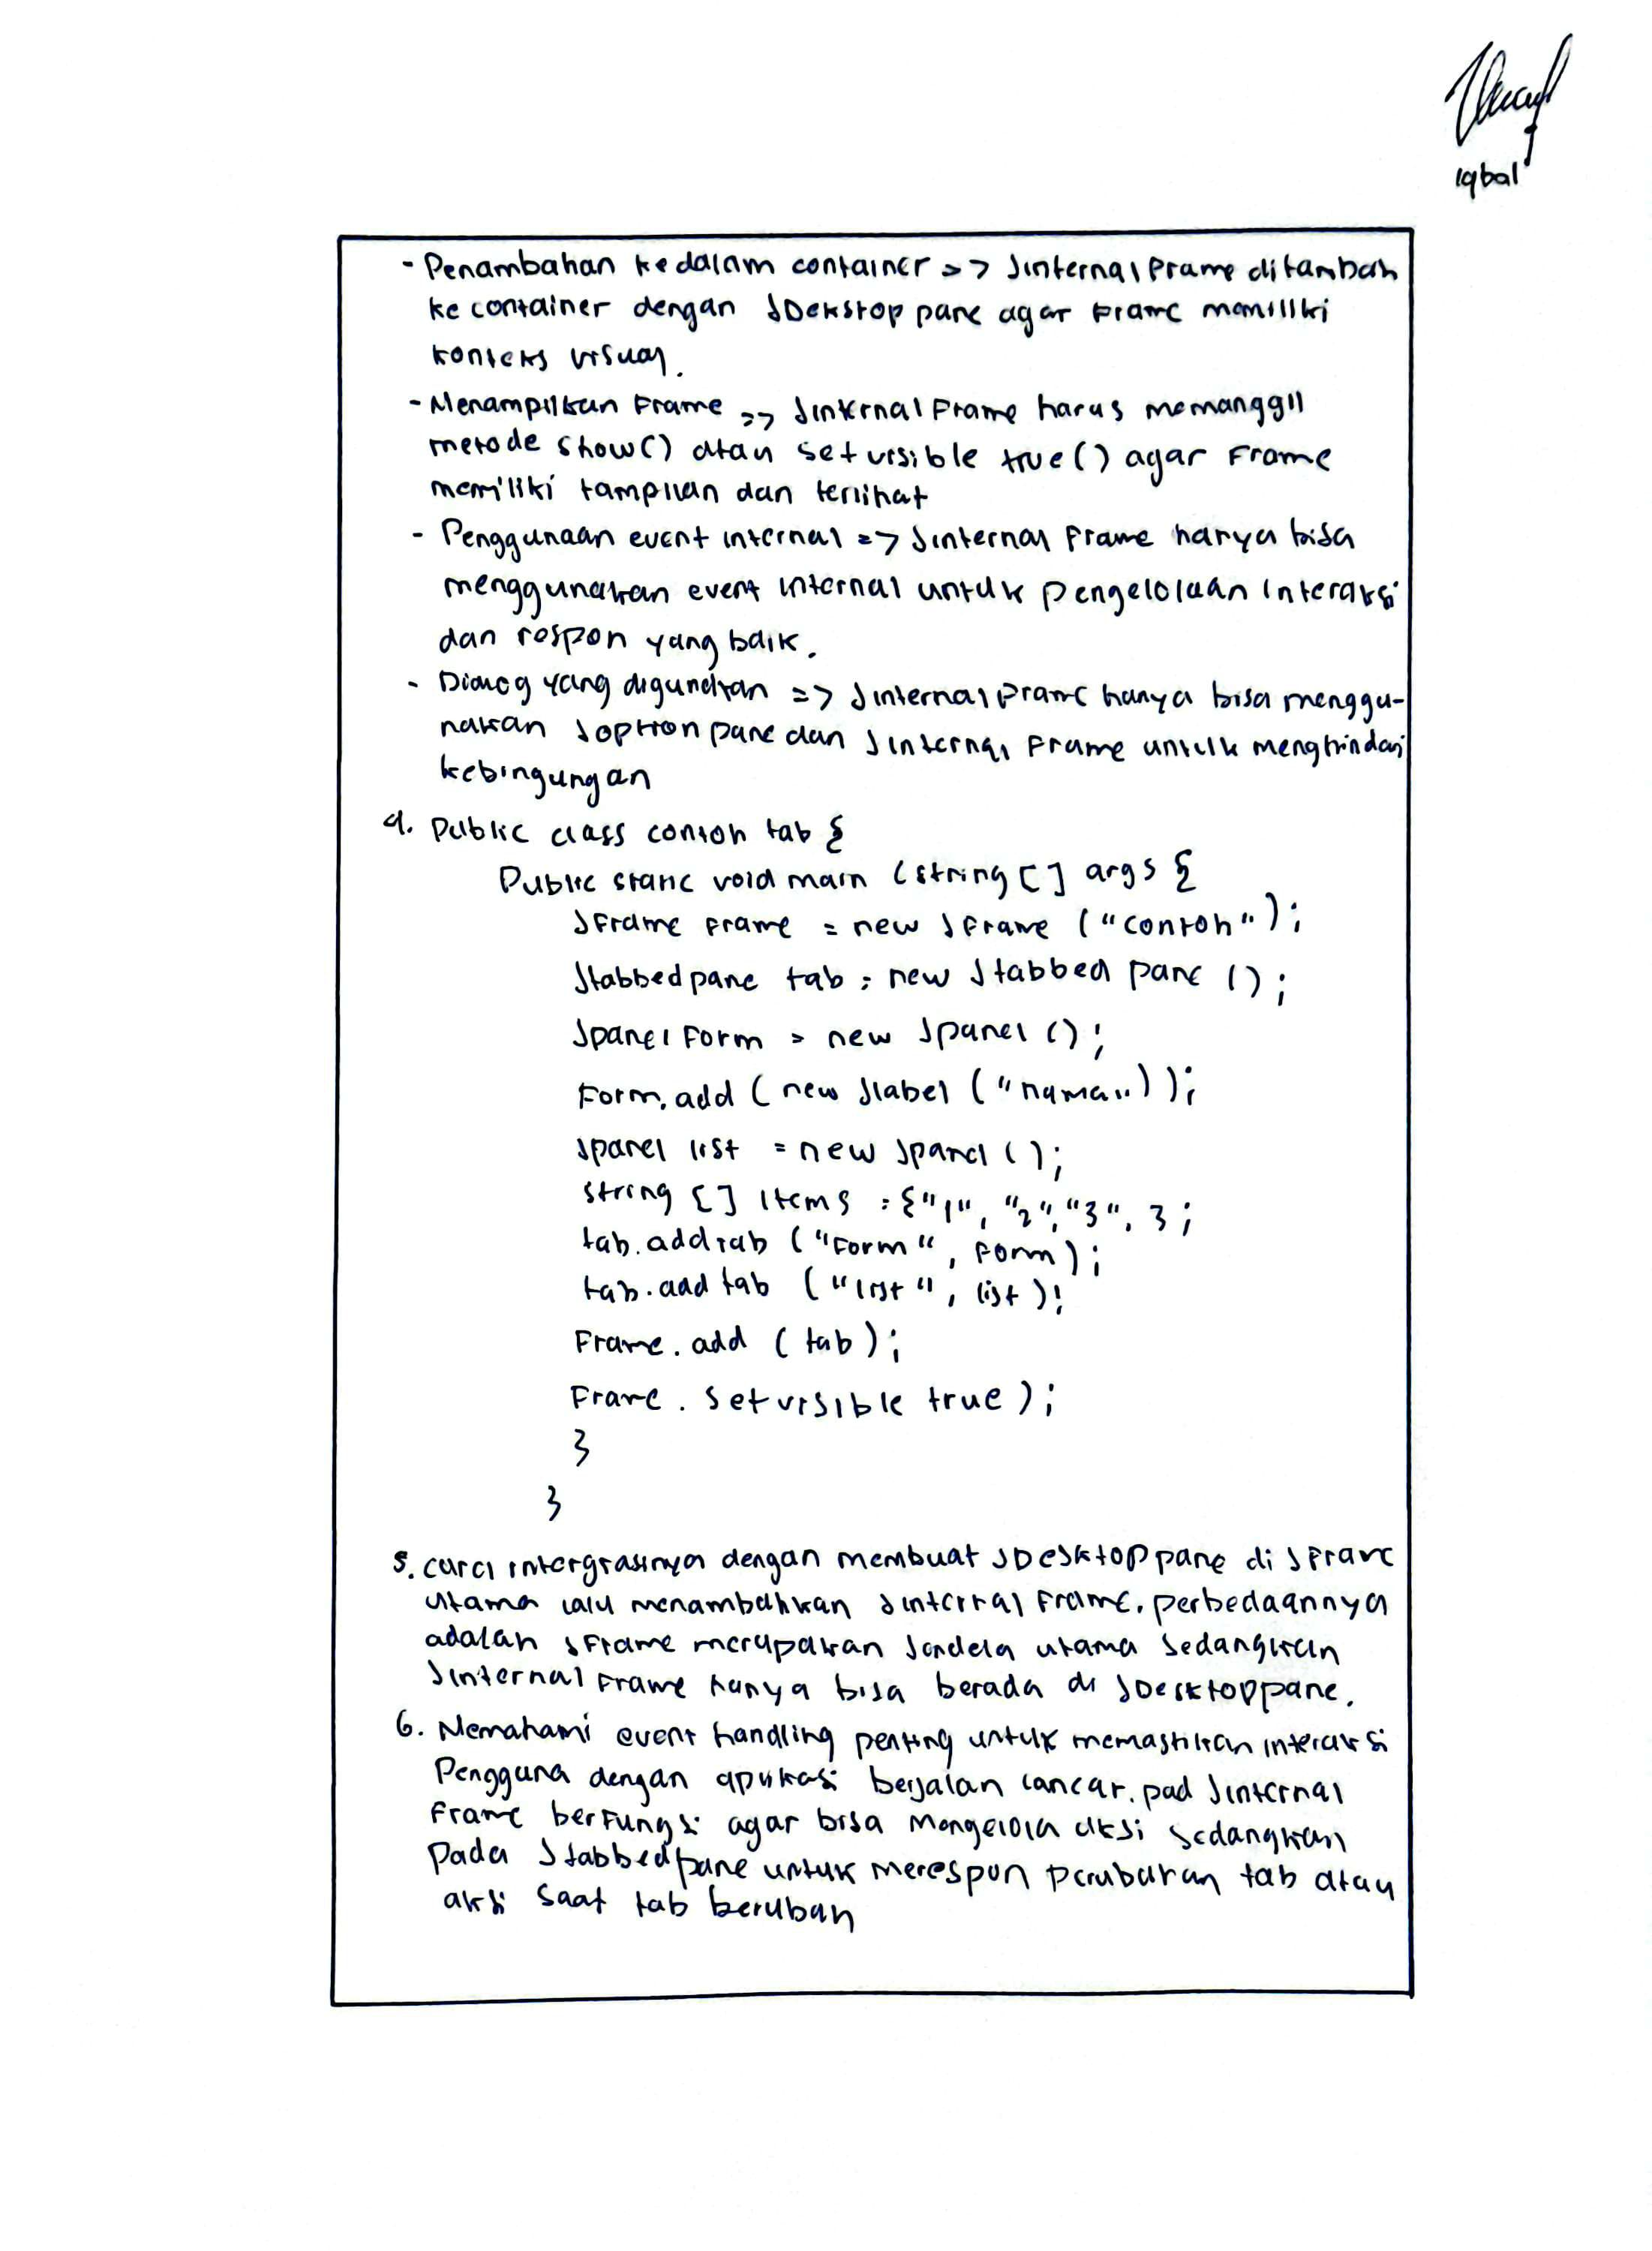 Iqbal
- Penambahan kedalam container => JinternalFrame ditambah
ke container dengan JDekstop pane agar Frame memiliki
konteks visual.
- Menampilkan Frame => JinternalFrame harus memanggil
metode show() atau set visible true() agar Frame
memiliki tampilan dan terlihat
- Penggunaan event internal => Jinternal Frame hanya bisa
menggunakan event internal untuk pengelolaan interaksi
dan respon yang baik.
- Dialog yang digunakan => JinternalFrame hanya bisa menggu-
nakan Joption pane dan Jinternal Frame untuk menghindari
kebingungan
4. Public class contoh tab {
Public static void main (string [] args {
JFrame Frame = new JFrame ("contoh");
Jtabbedpane tab = new Jtabbed pane ();
Jpanel Form = new Jpanel ();
Form.add (new Jlabel ("nama"));
Jpanel list = new Jpanel ();
string [] items = {"1", "2", "3", };
tab.addtab ("Form", Form);
tab.add tab ("list", list);
Frame.add (tab);
Frame. set visible true);
}
}
5. cara intergrasinya dengan membuat JDesktoppane di JFrame
utama lalu menambahkan Jinternal Frame. perbedaannya
adalah JFrame merupakan Jendela utama sedangkan
Jinternal Frame hanya bisa berada di JDesktoppane.
6. Memahami event handling penting untuk memastikan interaksi
Pengguna dengan aplikasi berjalan lancar. pad Jinternal
Frame berfungsi agar bisa mengelola aksi sedangkan
Pada Jtabbedpane untuk merespon perubahan tab atau
aksi saat tab berubah